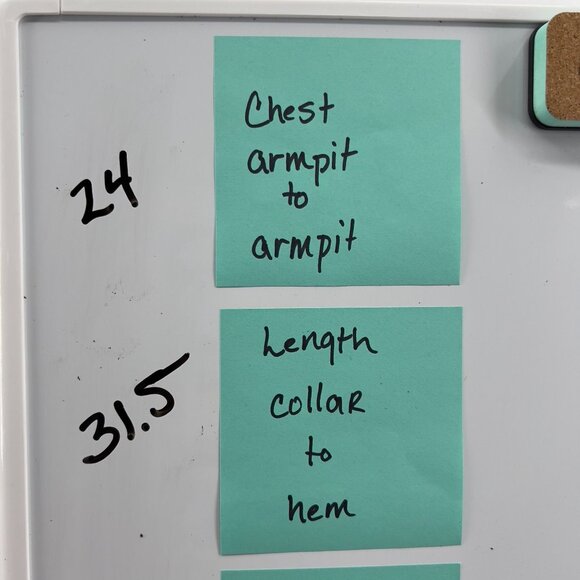 24
Chest
armpit
to
armpit
31.5
Length
collar
to
hem